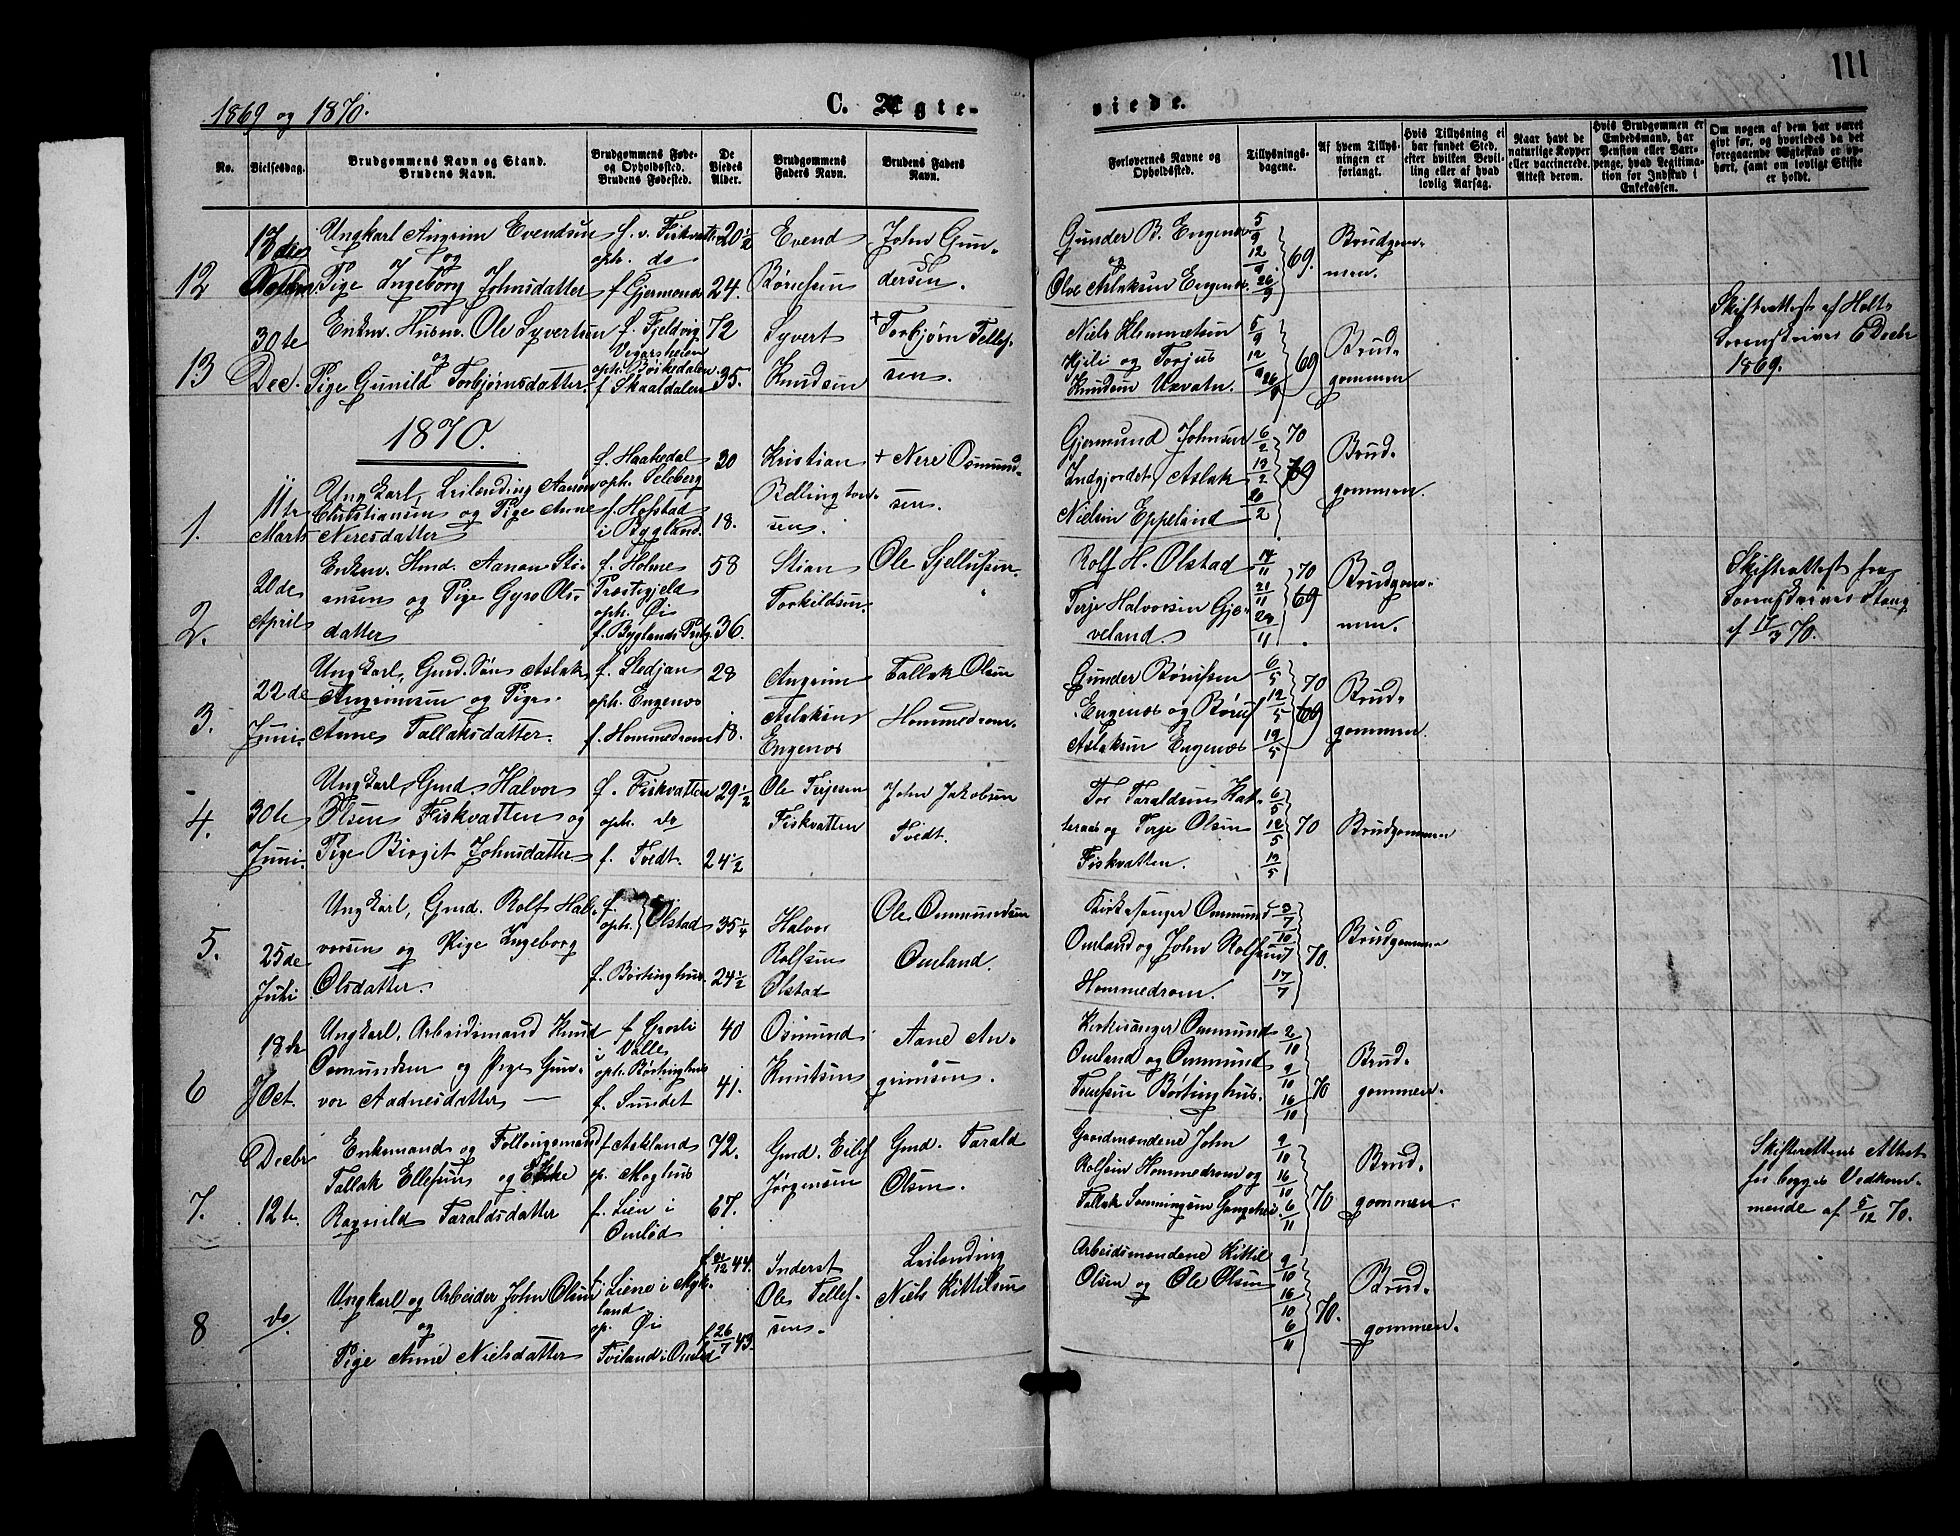 111
1869 og 1870.
C. Ægte-
viede.
No.
Vielsesdag.
Brudgommens Navn og Stand.
Brudens Navn.
Brudgommens Føde-
og Opholdssted.
Brudens Fødested.
De
Viedes
Alder.
Brudgommens
Faders Navn.
Brudens Faders
Navn.
Forlovernes Navne og
Opholdssted.
Tillysnings-
dagene.
Af hvem Tillys-
ningen er
forlangt.
Hvis Tillysning ei
har fundet Sted,
efter hvilken Bevil-
ling eller af hvad
lovlig Aarsag.
Naar havt de
naturlige Kopper
eller vaccinerede.
Attest derom.
Hvis Brudgommen er
Embedsmand, har
Pension eller Vart-
penge, hvad Legitima-
tion for Indskud i
Enkekassen.
Om nogen af dem har været
gift før, og hvorledes da det
foregaaende Ægteskab er op-
hørt, samt om lovligt Skifte
er holdt.
12
Ungkarl Angrim Evendsen
og
Pige Ingeborg Johnsdatter
f. v. Fiskvatten
oph. do
f Gjermond
20 1/2
24.
Evend
Børufsen
John Gun-
dersen.
Gunder B. Engenes
og
Olve Aslaksen Engenes.
5/9
12/9
26/9
69.
Brudgom-
men.
13
30te
Dec.
Enkem. Husm. Ole Syvertsen
og
Pige Gunild Torbjørnsdatter.
f. Fjeldvig
Vegarsheien
oph. Børksdalen
f Skaaldalen
72
35.
Syvert
Knudsen
+ Torbjørn Tellef-
sen.
Niels Klemmetsen
Kjili og Torjus
Knudsen Uvatn.
5/9
12/9
26/9
69
Brud-
gommen
Skifteattest af Holts
Sorenskriver 6 Decbr
1869.
1870.
1.
11te
Marts
Ungkarl, Leilænding Aanon
Christiansen og Pige Anne
Neresdatter
f. Haakedal
oph. Seleberg
f. Hofstad
i Bygland.
30
18.
Kristian
Rellington-
sen.
+ Neri Osmund-
sen.
Gjermund Johnsen
Indgjordet, Aslak
Nielsen Eppeland
6/2
13/2
20/2
70
Brud-
gommen.
2.
20de
April
Enkem. Gmd. Aanon Sti-
ansen og Pige Gyro Ols-
datter
f. Holme
Præstegjeld
oph. Øi
f. Byglands Prstg.
58
36.
Stian
Torkildsen.
Ole Sjellufsen.
Rolf H. Olstad
Terje Halvorsen Gjer-
veland.
14/11
21/11
28/11
70
69
Brudgom-
men.
Skifteattest fra
Sorenskriver Stang
af 17/3 70.
3.
22de
Juni.
Ungkarl, Gmd. Søn Aslak
Angrimsen og Pige
Anne Tallaksdatter.
f. Stedjan
oph. Engenes
f. Hommedrom
28
18.
Angrim
Aslaksen
Engenes
Tallak Olsen
Hommedrom.
Gunder Børufsen
Engenes og Børuf
Aslaksen Engenes
6/5
12/5
19/5
70
69
Brud-
gommen.
4.
30te
Juni.
Ungkarl, Gmd. Halvor
Olsen Fiskvatten og
Pige Birgit Johnsdatter
f. Fiskvatten
oph. do
f. Tvedt.
29 1/2
24 1/2
Ole Terjesen
Fiskvatten
John Jakobsen
Tvedt.
Tor Taraldsen Kat-
teraas og Terje Olsen
Fiskvatten.
6/5
12/5
13/5
70
Brudgommen
5.
25de
Juli
Ungkarl, Gmd. Rolf Hal-
vorsen og Pige Ingeborg
Olsdatter.
f.
oph. Olstad
f. Børtinghus.
35 1/4
24 1/2
Halvor
Rolfsen
Olstad
Ole Ommundsen
Omland.
Kirkesanger Ommund
Omland og John Rolfsen
Hommedrom.
3/7
10/7
17/7
70.
Brudgommen
6
18de
Oct.
Ungkarl, Arbeidsmand Knud
Osmundsen og Pige Gun-
vor Aadnesdatter
f Grosli
i Valle
oph. Børtinghus
f. Sundet
40
41.
Osmund
Knutsen
Aane An-
grimsen.
Kirkesanger Ommund
Omland og Ommund
Tomefsen Børtinghus.
2/10
9/10
16/10
70
Brud-
gommen.
7.
Decbr
12te
Enkemand og Follougsmand
Tallak Ellefsen og Enke
Ragnild Taraldsdatter
f. Askland
op. Moghus
f. Lien i
Omlid
72.
67.
Gmd. Eilef
Jørgensen
Gmd. Tarald
Olsen.
Gaardmændene John
Rolfsen Hommedrom og
Tallak Sonningsen Haugehei.
9/10
16/10
6/11
70
Brud-
gommen.
Skifterettens Attest
for begge Vedkom-
mende af 5/12 70.
8
do.
Ungkarl og Arbeider John Olsen
og
Pige Anne Nielsdatter
f. Liene i Ask-
land
op. Øi
Tveiland i Omlid
f. 21/12 44.
f. 26/7 43.
Inderst
Ole Tellef-
sen.
Leilending
Niels Kittilsen
Arbeidsmændene Kittil
Olsen og Ole Olsen
9/10
16/10
6/11
70.
Brud-
gommen.